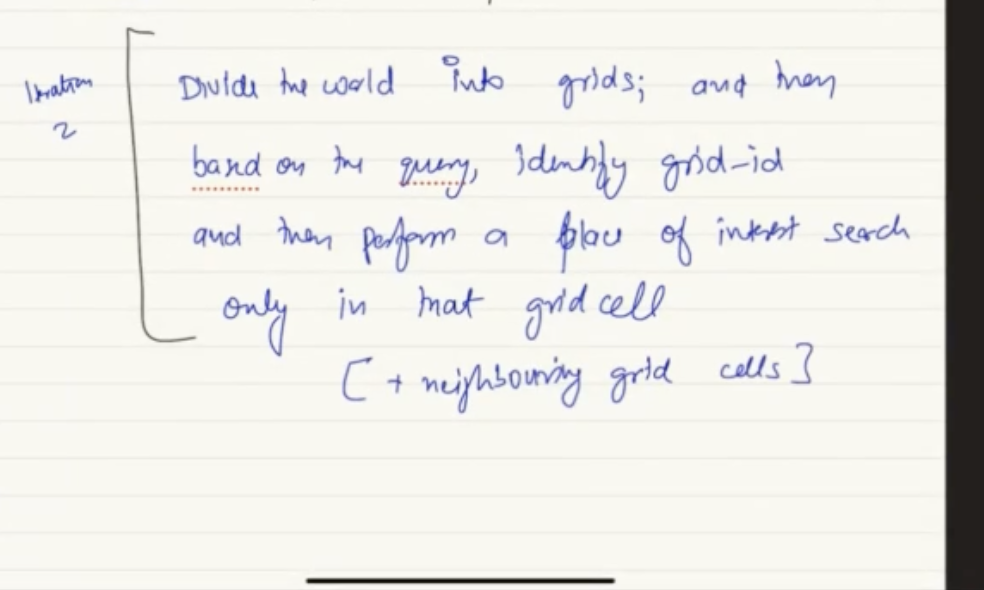 Iteration
2
Divide the world into grids; and then
based on the query, identify grid-id
and then perform a place of interest search
only in that grid cell
[+ neighbouring grid cells]